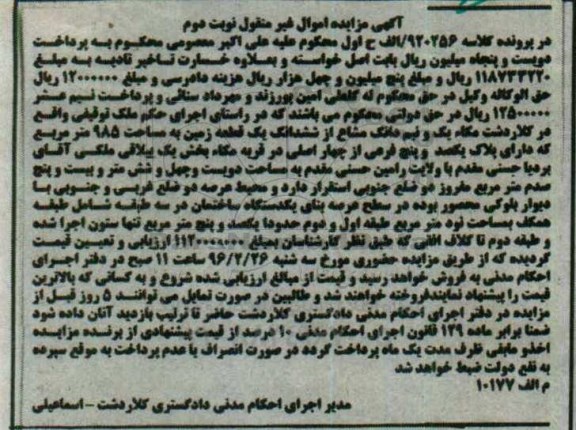 آگهی مزایده اموال غیر منقول نوبت دوم
در پرونده کلاسه ۹۲۰۲۵۶/الف ح اول محکوم علیه علی اکبر معصومی محکوم به پرداخت
دویست و پنجاه میلیون ریال بابت اصل خواسته و بعلاوه خسارت تاخیر تادیه به مبلغ
۱۱۸۷۳۳۲۲۰ ریال و مبلغ پنج میلیون و چهل هزار ریال هزینه دادرسی و مبلغ ۱۲۰۰۰۰۰۰ ریال
حق الوکاله وکیل در حق محکوم له گلعلی امین پورزند و مهرداد سنائی و پرداخت نیم عشر
۱۲۵۰۰۰۰۰ ریال در حق دولتی محکوم می باشند که در راستای اجرای حکم ملک توقیفی واقع
در کلاردشت مکاء یک و نیم دانگ مشاع از ششدانگ یک قطعه زمین به مساحت ۹۸۵ متر مربع
که دارای پلاک یکصد و پنج فرعی از چهار اصلی در قریه مکاء بخش یک ییلاقی ملکی آقای
بردیا حسنی مقدم با ولایت رامین حسنی مقدم به مساحت دویست وچهل و شش متر و بیست و پنج
صدم متر مربع مفروز دو ضلع جنوبی استقرار دارد و محیط عرصه دو ضلع غربی و جنوبی با
دیوار بلوکی محصور بوده در سطح عرصه بنای یکدستگاه ساختمان در سه طبقه شامل طبقه
همکف بمساحت نود متر مربع طبقه اول و دوم حدودا یکصد و پنج متر مربع تنها ستون اجرا شده
و طبقه دوم تا کلاف افقی که طبق نظر کارشناسان بمبلغ ۱۱۲۰۰۰۰۰۰۰ ارزیابی و تعیین قیمت
گردیده که از طریق مزایده حضوری مورخ سه شنبه ۹۶/۲/۲۶ ساعت ۱۱ صبح در دفتر اجرای
احکام مدنی به فروش خواهد رسید و قیمت از مبالغ ارزیابی شده شروع و به کسانی که بالاترین
قیمت را پیشنهاد نمایندفروخته خواهند شد و طالبین در صورت تمایل می توانند ۵ روز قبل از
مزایده در دفتر اجرای احکام مدنی دادگستری کلاردشت حاضر تا ترتیب بازدید آنان داده شود
ضمنا برابر ماده ۱۲۹ قانون اجرای احکام مدنی ۱۰ درصد از قیمت پیشنهادی از برنده مزایده
اخذو مابقی ظرف مدت یک ماه پرداخت گردد در صورت انصراف یا عدم پرداخت به موقع سپرده
به نفع دولت ضبط خواهد شد
م الف ۱۰۱۷۷
مدیر اجرای احکام مدنی دادگستری کلاردشت - اسماعیلی